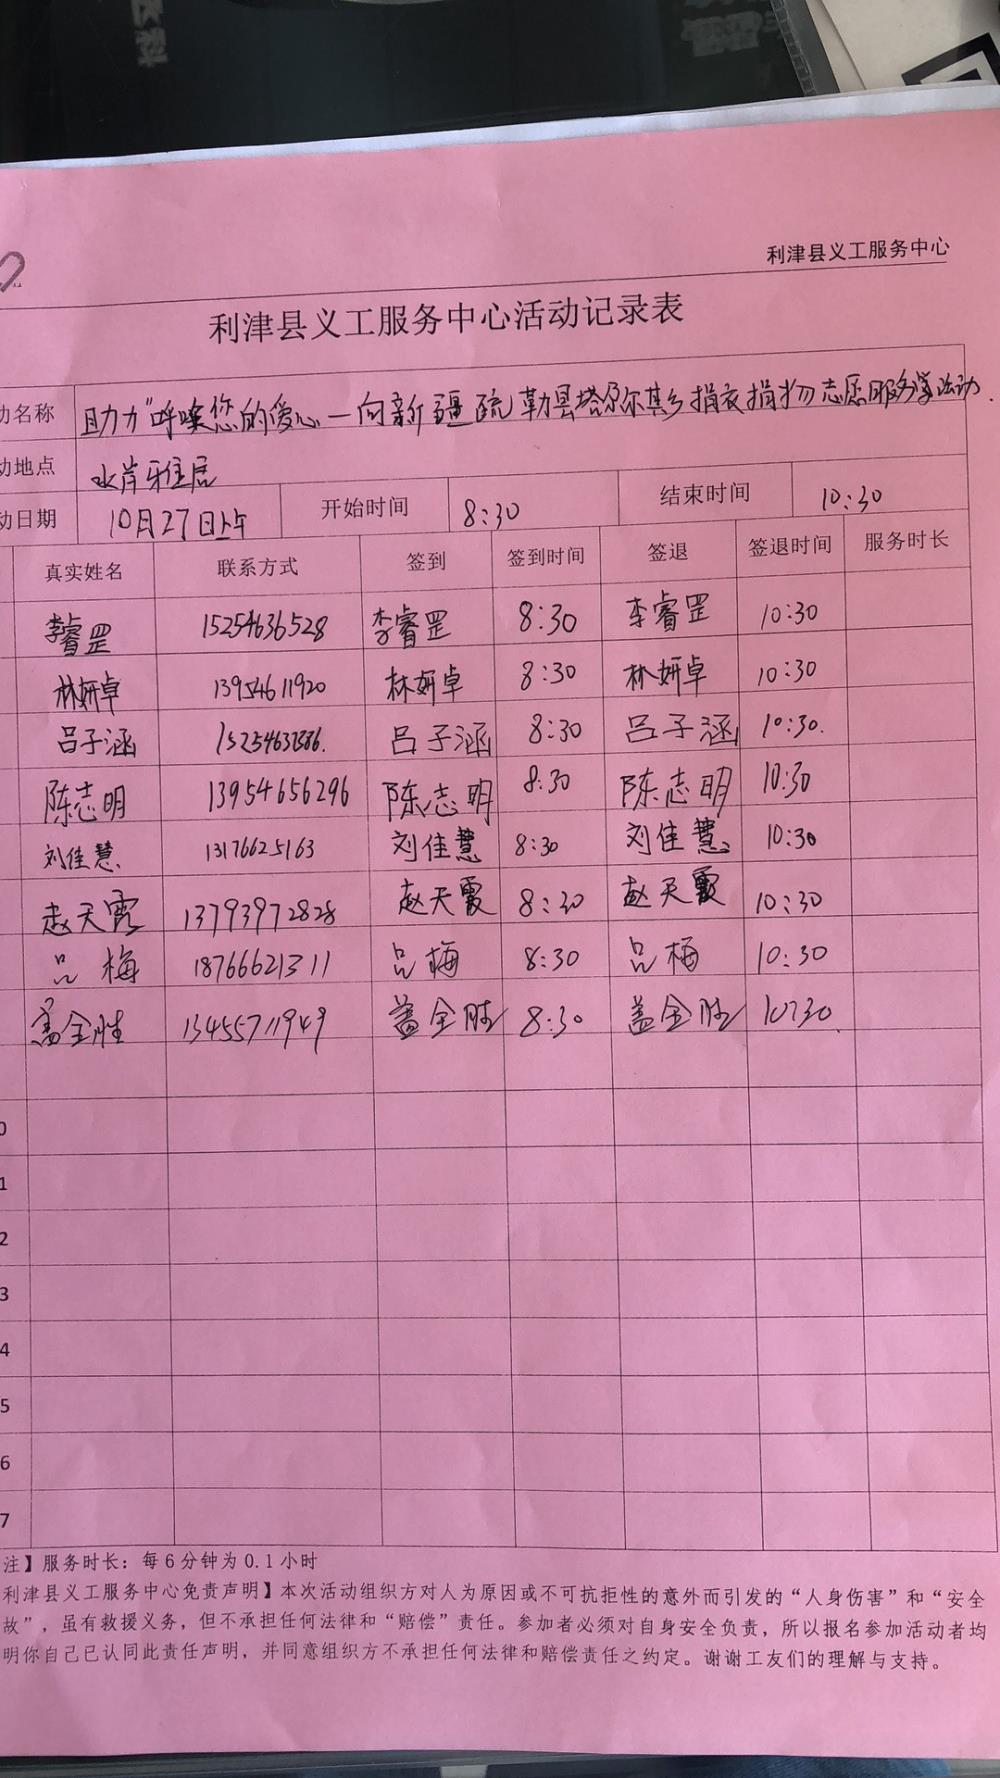 利津县义工服务中心
利津县义工服务中心活动记录表
动名称 助力"呼唤您的爱心—向新疆疏勒县塔尕尔其乡捐衣捐物志愿服务活动
动地点 水岸雅居
动日期 10月27日上午 开始时间 8:30 结束时间 10:30
真实姓名 联系方式 签到 签到时间 签退 签退时间 服务时长
李睿罡 15254636528 李睿罡 8:30 李睿罡 10:30
林妍卓 13954611920 林妍卓 8:30 林妍卓 10:30
吕子涵 吕子涵 8:30 吕子涵 10:30.
陈志明 13954656296 陈志明 8:30 陈志明 10:30
刘佳慧 13176625163 刘佳慧 8:30 刘佳慧 10:30
赵天霞 13793972828 赵天霞 8:30 赵天霞 10:30
吕梅 18766621311 吕梅 8:30 吕梅 10:30
盖金胜 13455711949 盖金胜 8:30 盖金胜 10:30
0
1
2
3
4
5
6
7
注】服务时长：每6分钟为0.1小时
利津县义工服务中心免责声明】本次活动组织方对人为原因或不可抗拒性的意外而引发的“人身伤害”和“安全
故”，虽有救援义务，但不承担任何法律和“赔偿”责任。参加者必须对自身安全负责，所以报名参加活动者均
明你自己已认同此责任声明，并同意组织方不承担任何法律和赔偿责任之约定。谢谢工友们的理解与支持。